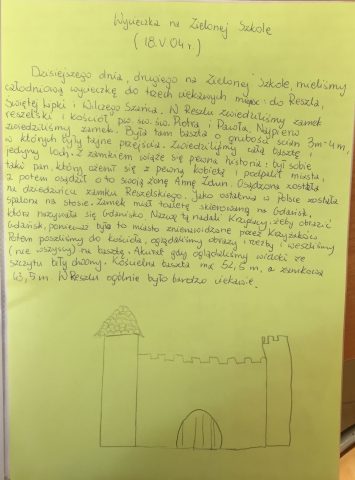 Wycieczka na Zielonej Szkole
(18.V 04 r.)
Dzisiejszego dnia, drugiego na Zielonej Szkole, mieliśmy
całodniową wycieczkę do trzech ciekawych miejsc: do Reszla,
Świętej Lipki i Wilczego Szańca. W Reszlu zwiedziliśmy zamek
reszelski i kościół pw. św. św. Piotra i Pawła. Najpierw
zwiedziliśmy zamek. Była tam baszta o grubości ścian 3m-4m,
w których były tajne przejścia. Zwiedziliśmy całą basztę i
jedyny loch. Z zamkiem wiąże się pewna historia: był sobie
taki pan, który ożenił się z pewną kobietą i podpalił miasto,
a potem osądził o to swoją żonę Annę Zdun. Osądzona została
na dziedzińcu zamku Reszelskiego. Jako ostatnia w Polsce została
spalona na stosie. Zamek miał toaletę skierowaną na Gdańsk,
która nazywała się Gdańsko. Nazwę tą nadali Krzyżacy, żeby obrazić
Gdańsk, ponieważ było to miasto znienawidzone przez Krzyżaków.
Potem poszliśmy do kościoła, oglądaliśmy obrazy i rzeźby i weszliśmy
(nie wszyscy) na basztę. Akurat gdy oglądaliśmy widoki ze
szczytu biły dzwony. Kościelna baszta ma 52,5 m, a zamkowa
43,5 m. W Reszlu ogólnie było bardzo ciekawie.